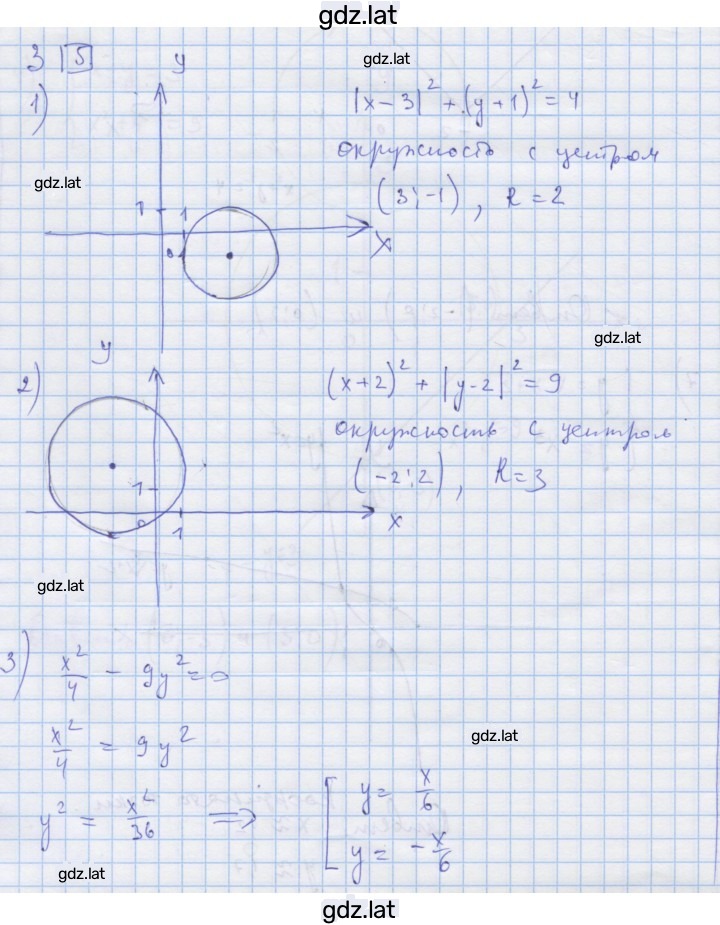 gdz.lat
3 |5|
gdz.lat
1)
y
|x-3|² + (y+1)² = 4
окружность с центром
(3;-1), R=2
gdz.lat
1
1
0
x
gdz.lat
2)
y
(x+2)² + |y-2|² = 9
окружность с центром
(-2;2), R=3
1
0
1
x
gdz.lat
3) x²/4 - 9y² = 0
x²/4 = 9y²
gdz.lat
y² = x²/36 => [ y = x/6
y = -x/6
gdz.lat
gdz.lat